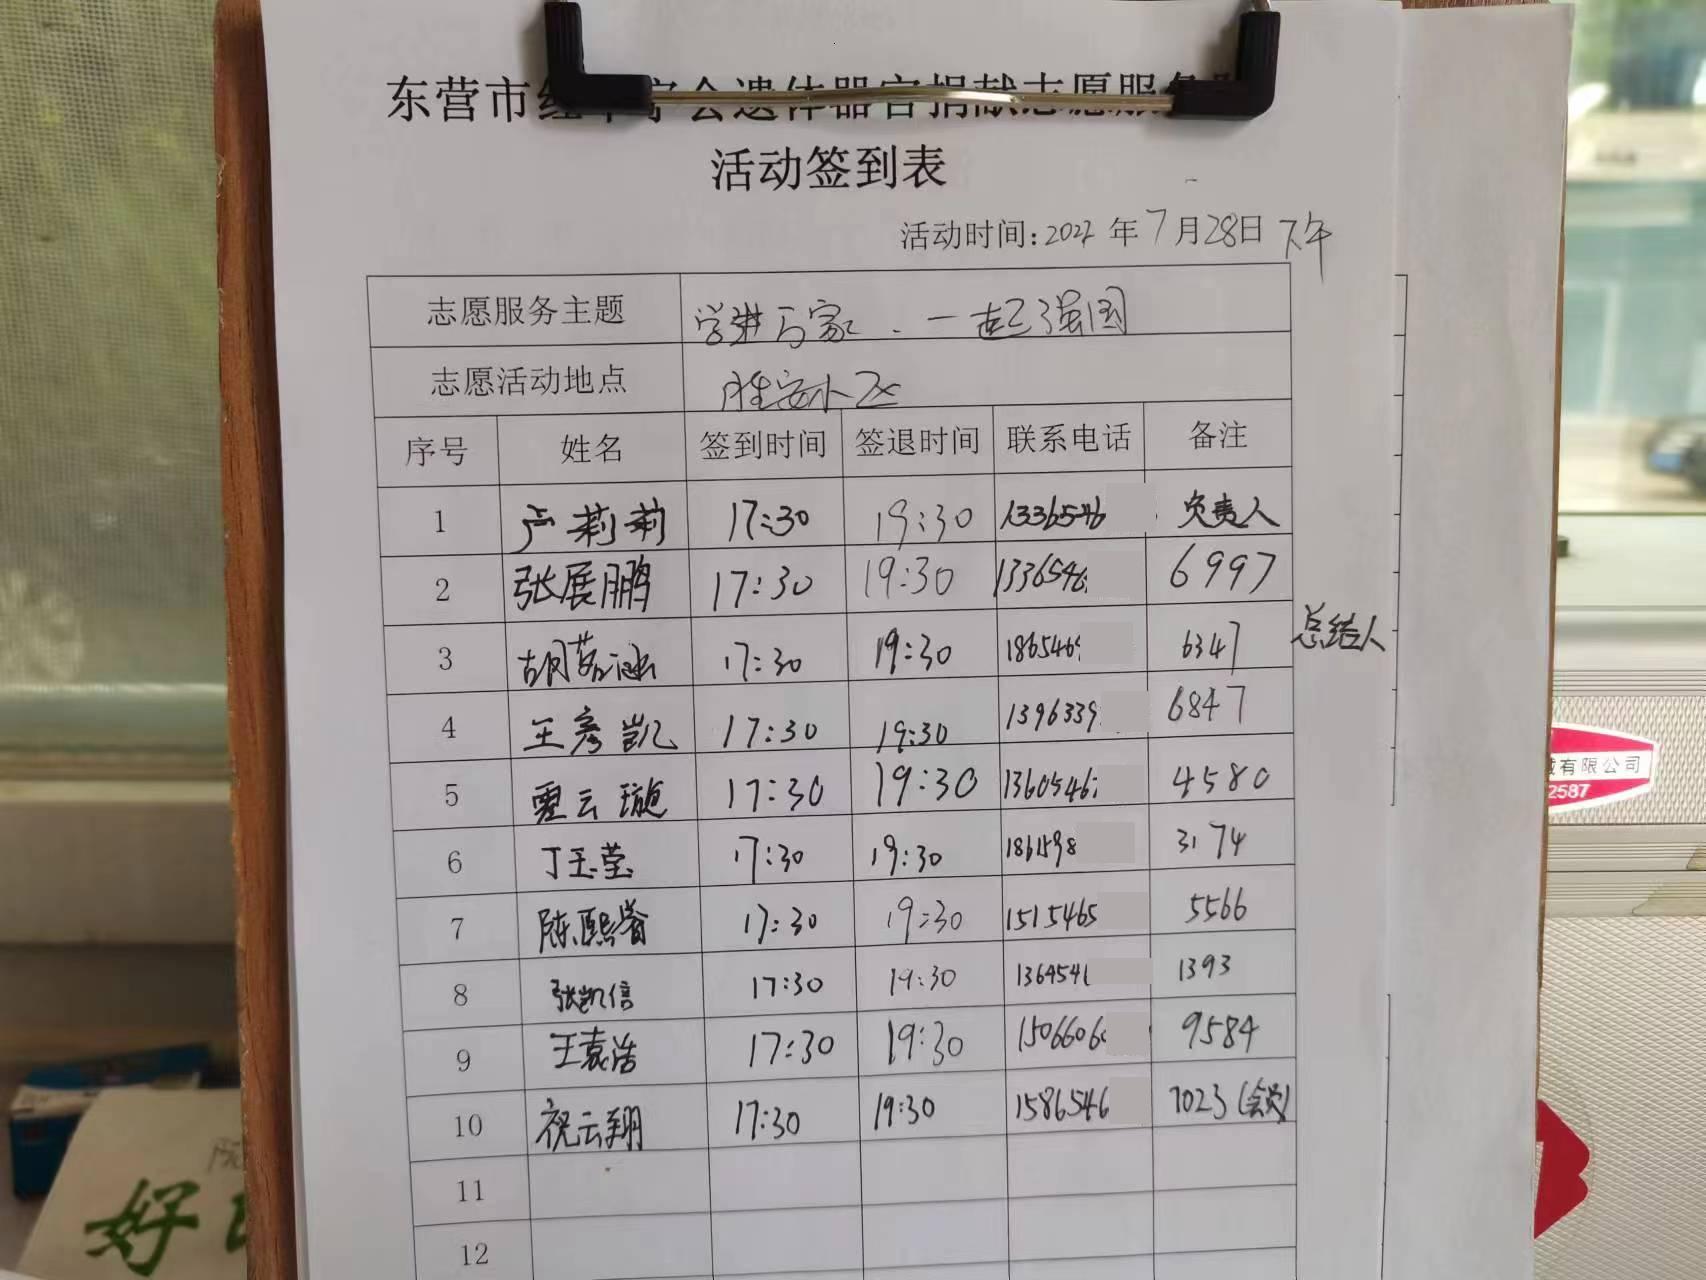 东营市红十字会遗体器官捐献志愿服务队
活动签到表
活动时间: 年 7 月 28 日 下午
志愿服务主题 学进万家 . 一起强国
志愿活动地点 胜安小区
序号 姓名 签到时间 签退时间 联系电话 备注
1 卢莉莉 17:30 19:30 1336546 负责人
2 张展鹏 17:30 19:30 1336546 6997
3 胡茗涵 17:30 19:30 1865469 6347 总结人
4 王彦凯 17:30 19:30 1396339 6847
5 云璇 17:30 19:30 1360546 4580
6 丁玉莹 17:30 19:30 1861598 3174
7 陈熙睿 17:30 19:30 1515465 5566
8 张凯信 17:30 19:30 136454 1393
9 王袁浩 17:30 19:30 1506606 9584
10 祝云翔 17:30 19:30 1586546 7023 (会员)
11
12
械有限公司
2587
好